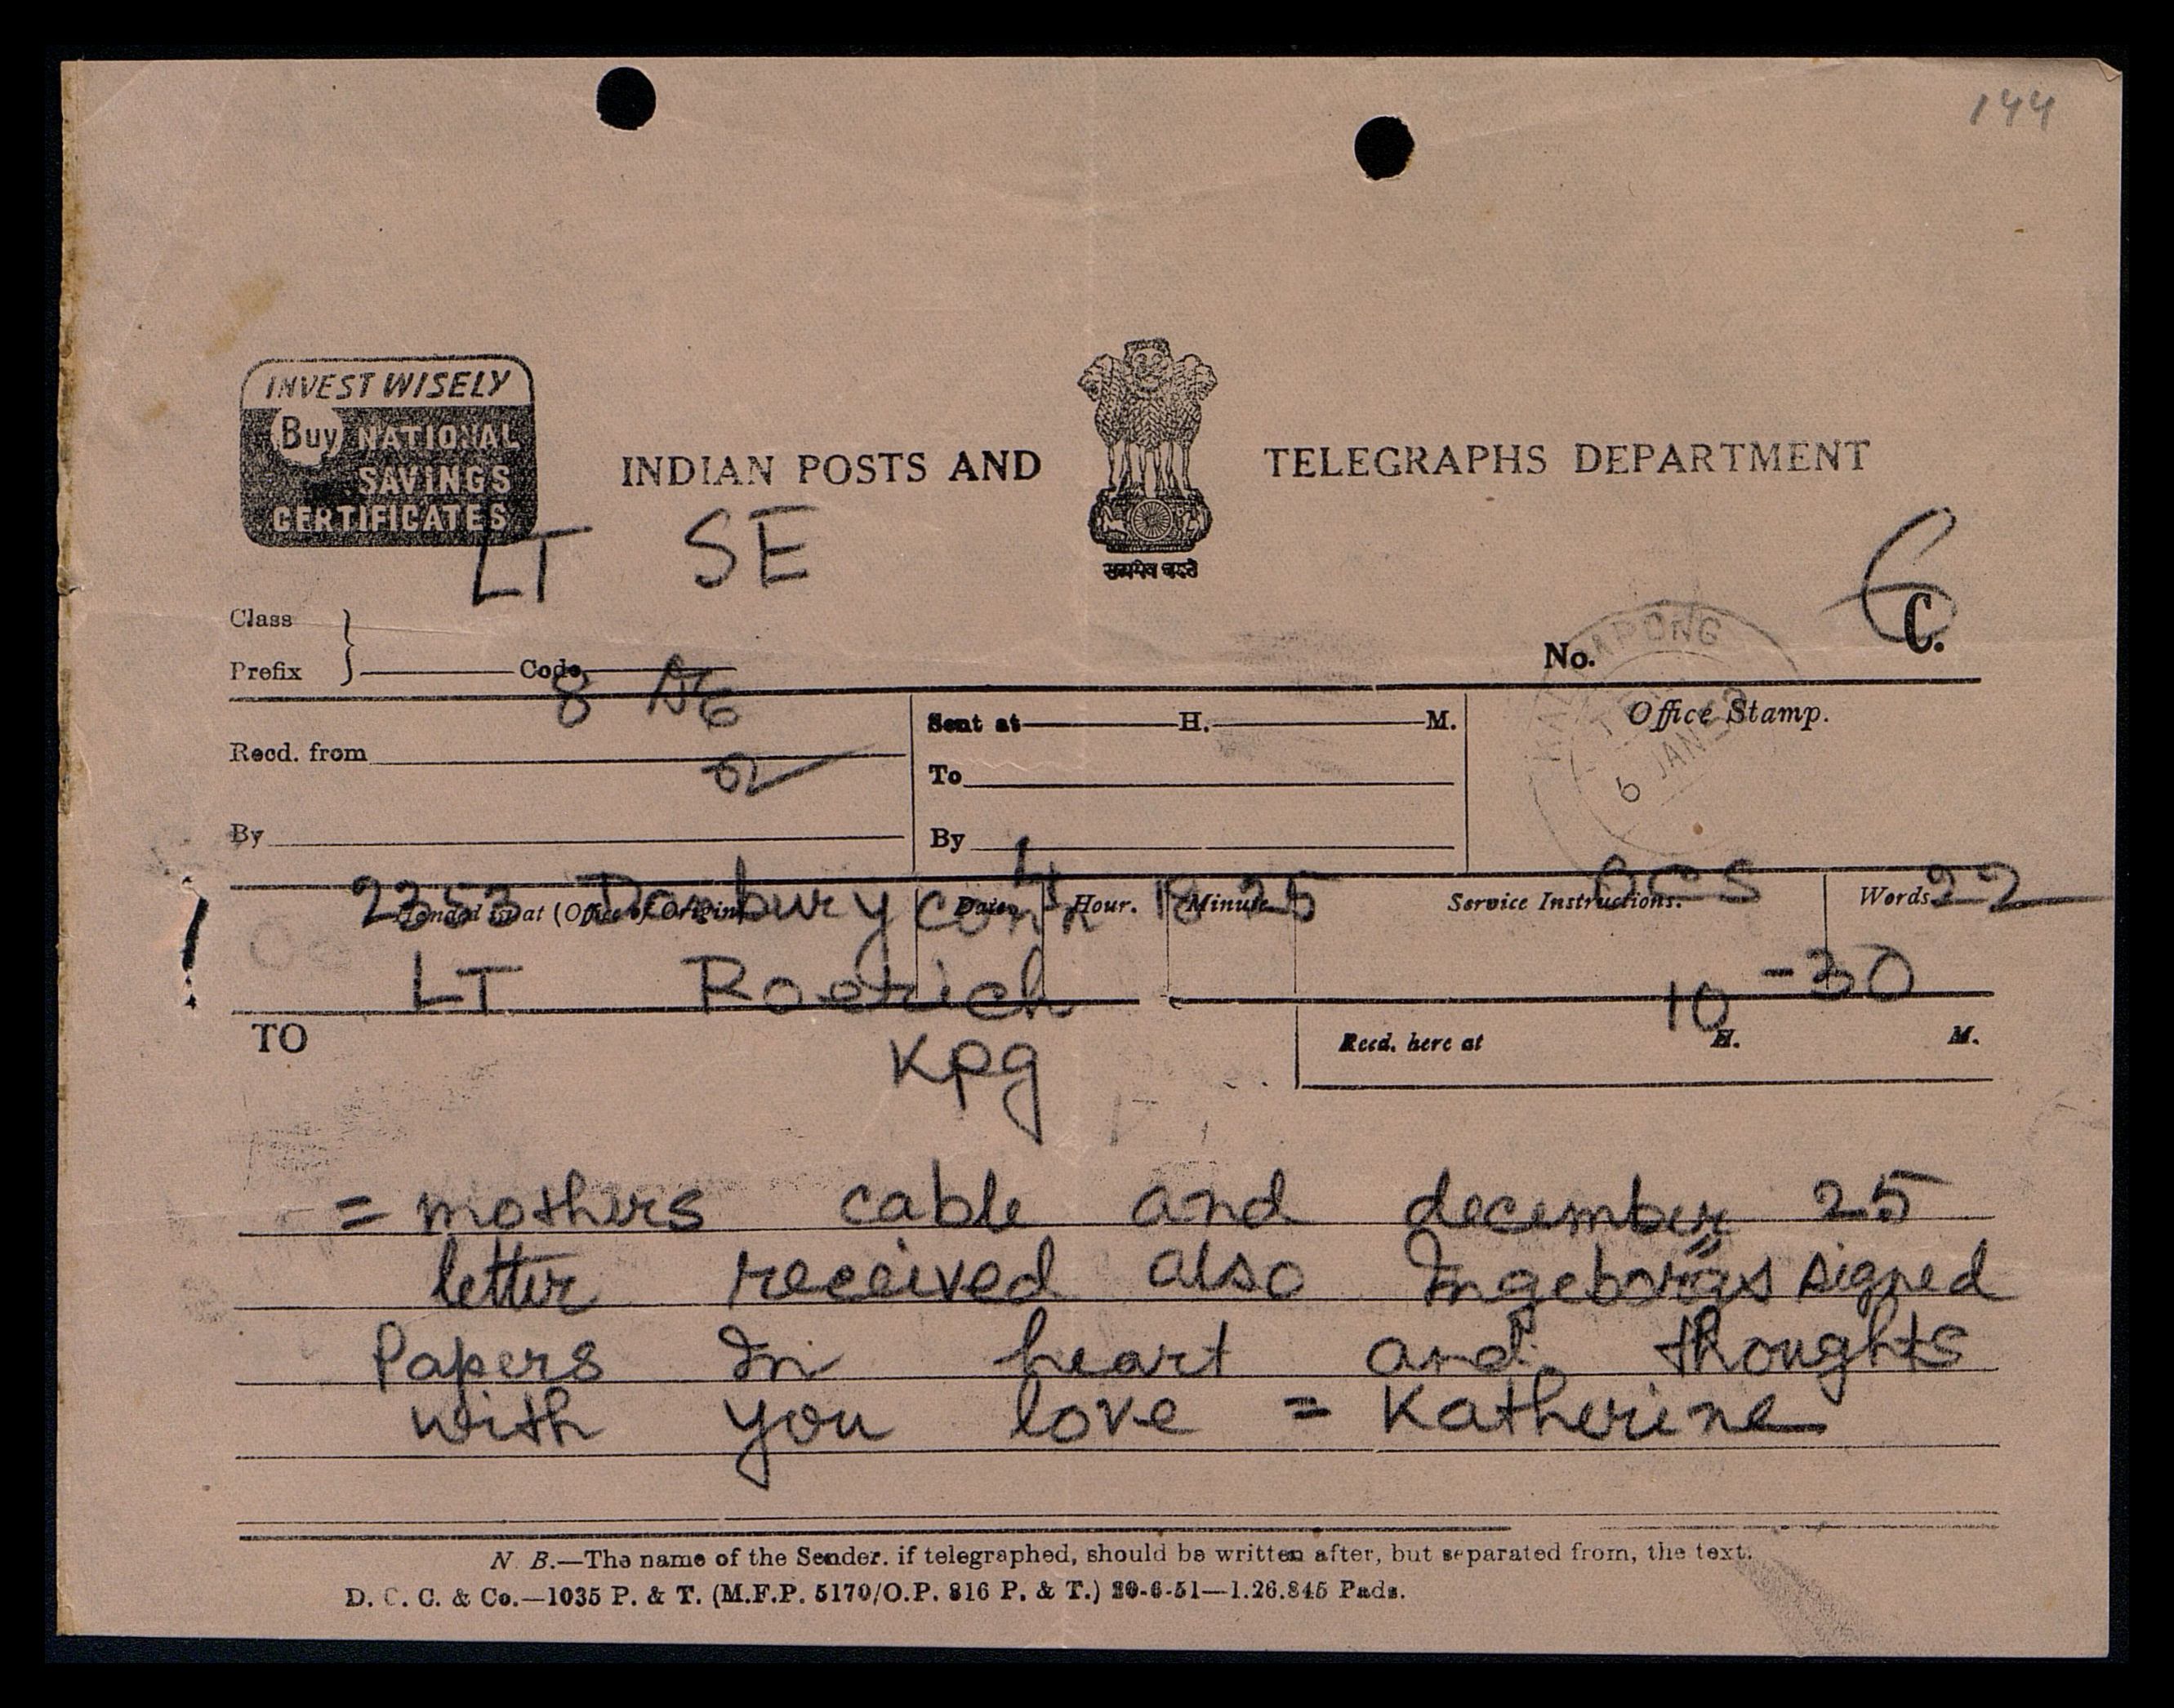 144
INVEST WISELY
Buy NATIONAL
SAVINGS
CERTIFICATES
INDIAN POSTS AND TELEGRAPHS DEPARTMENT
सत्यमेव जयते
LT SE
6
Class
Prefix
Code
No.
C.
KALIMPONG
6 JAN
8 NE
Recd. from
By
Sent at H. M.
To
By
Office Stamp.
Handed in at (Office of Origin).
Date.
Hour.
Minute.
Service Instructions.
Words
2353 Danbury Conn 4 1825 22
LT Roerich
TO
Kpg
10-30
Recd. here at H. M.
= mothers cable and december 25
letter received also Ingeborgs signed
Papers In heart and thoughts
with you love = Katherine
N. B.—The name of the Sender. if telegraphed, should be written after, but separated from, the text.
D. C. C. & Co.—1035 P. & T. (M.F.P. 5170/O.P. 816 P. & T.) 20-6-51—1.26.845 Pads.